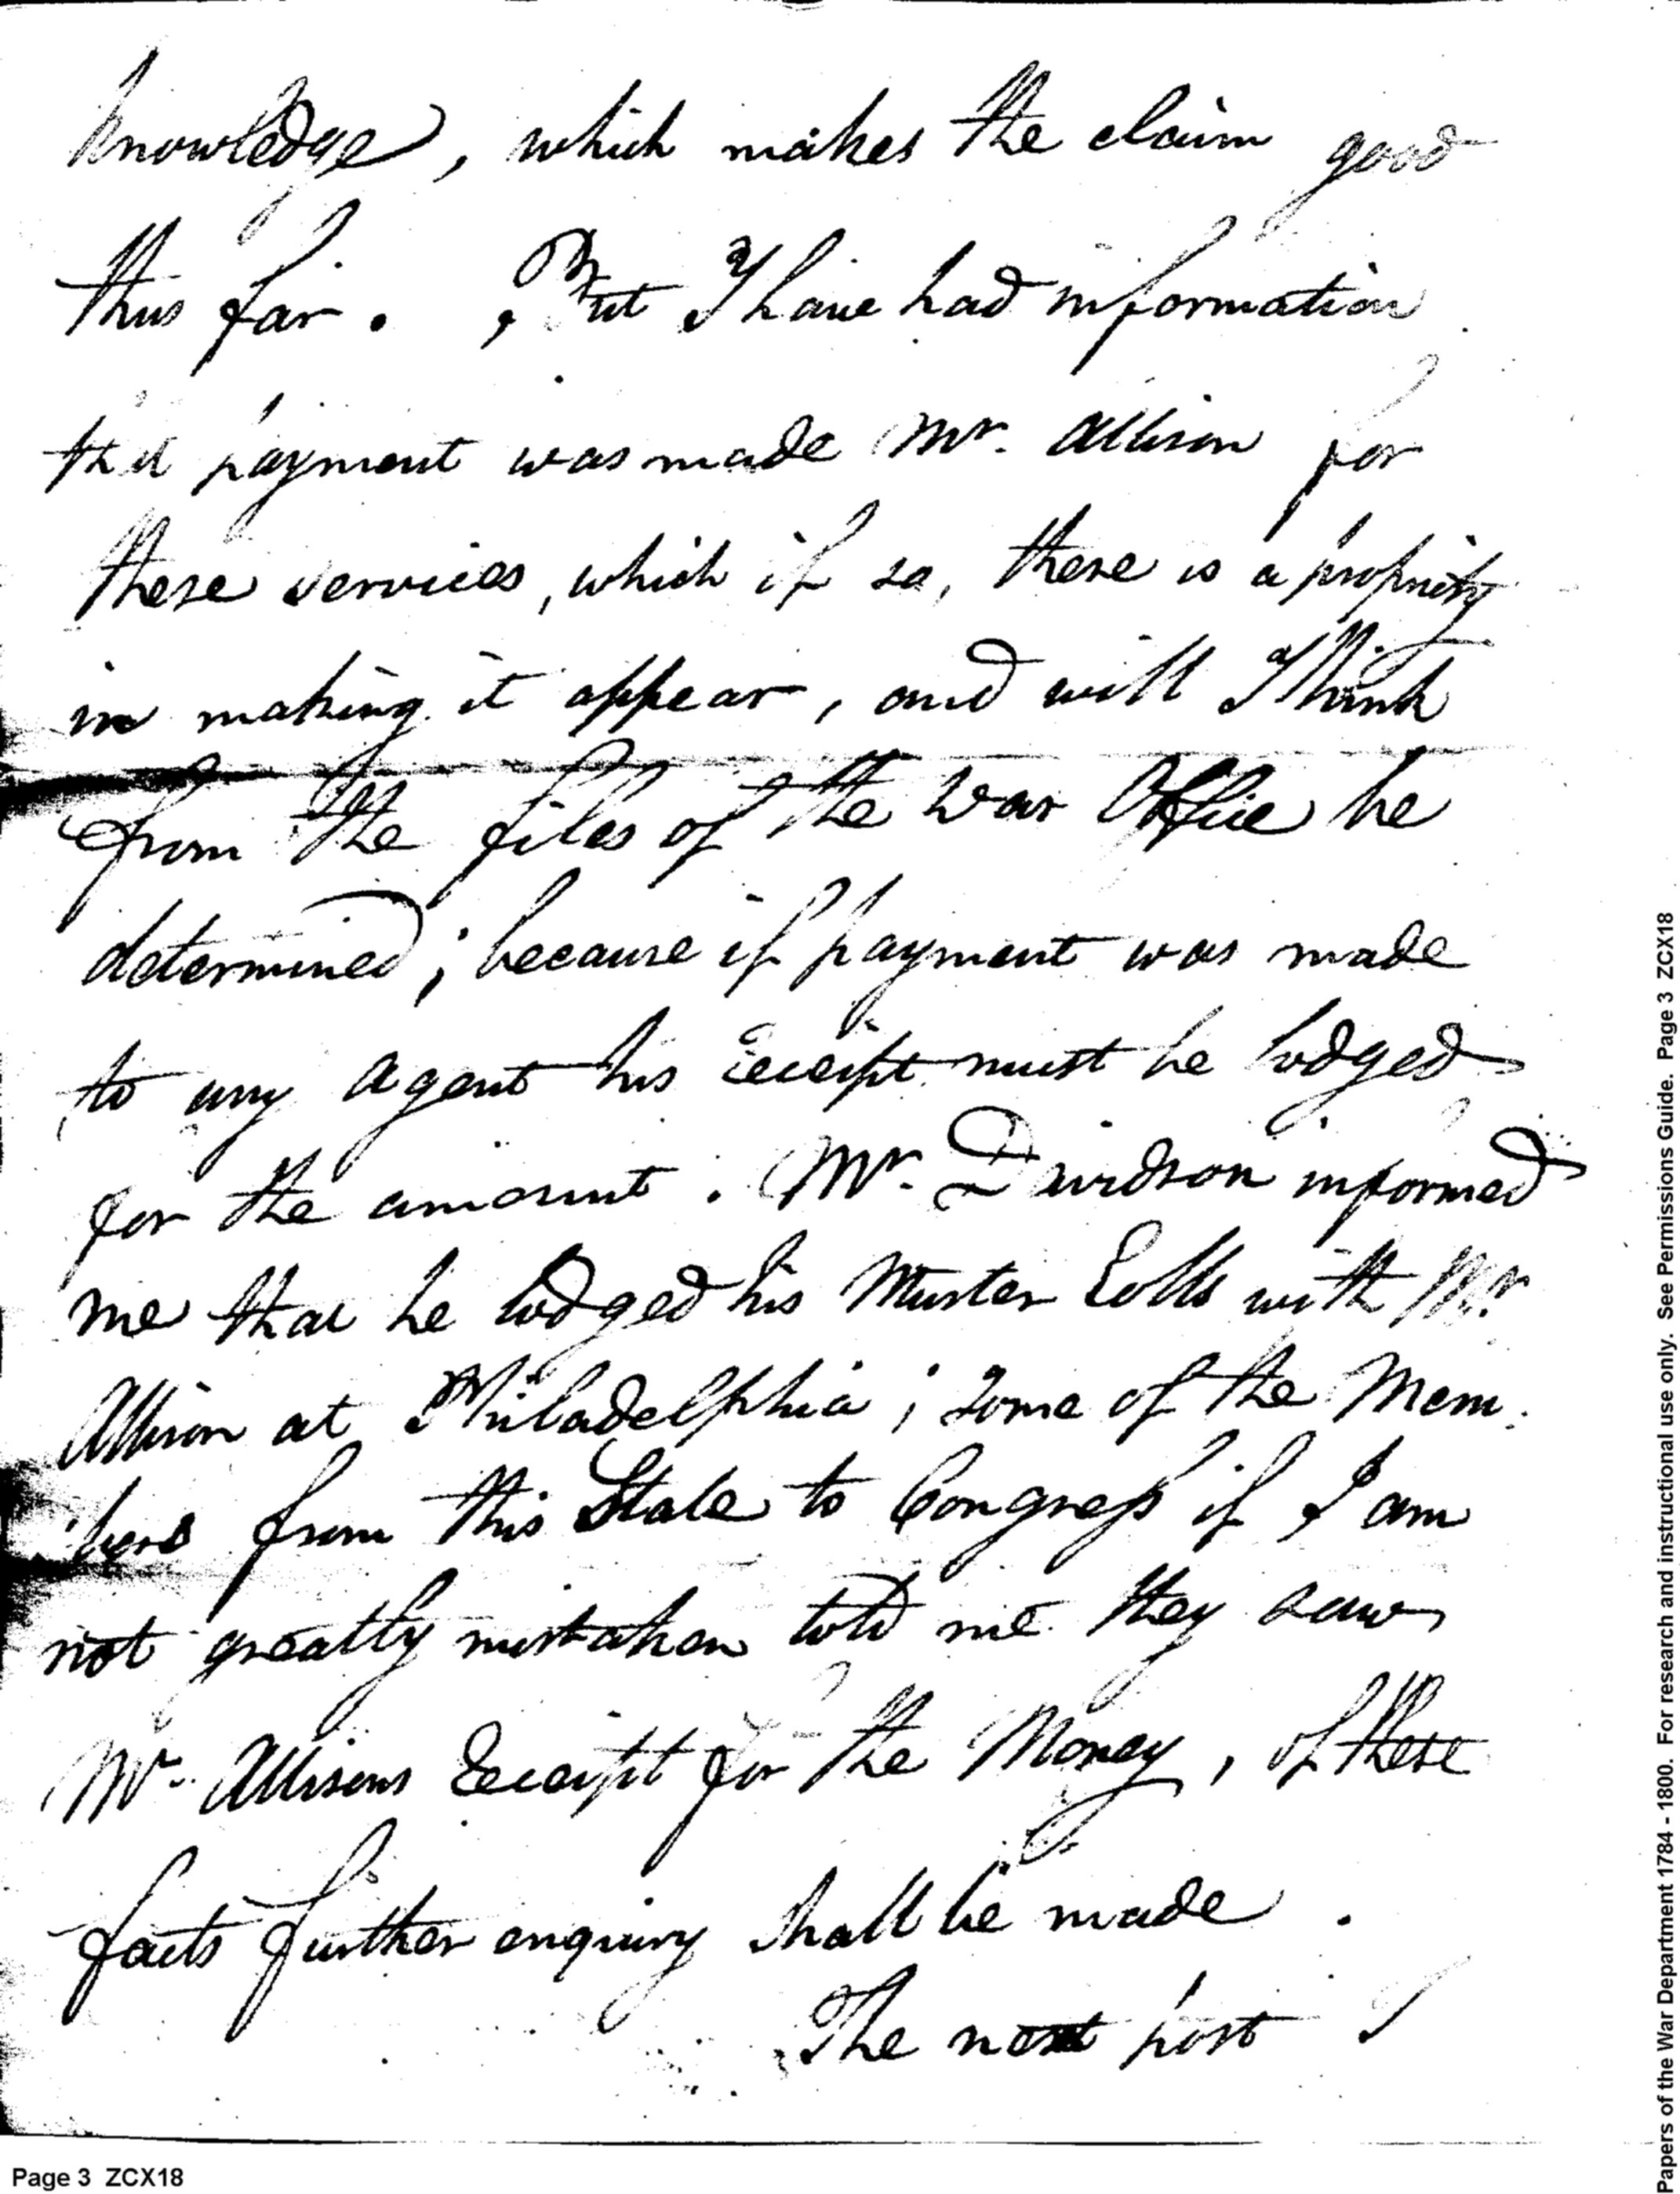 knowledge, which makes the claim good
thus far. But I have had information
that payment was made Mr. Allison for
these services, which if so, there is a propriety
in making it appear, and will I think
from the files of the War Office be
determined; because if payment was made
to any Agent his receipt must be lodged
for the amount. Mr. Davidson informed
me that he lodged his Muster Rolls with Mr.
Allison at Philadelphia; some of the Mem
bers from this State to Congress if I am
not greatly mistaken told me they saw
Mr. Allisons Receipt for the Money, of these
facts further enquiry shall be made.
The next post I
Page 3 ZCX18
Papers of the War Department 1784 - 1800. For research and instructional use only. See Permissions Guide. Page 3 ZCX18